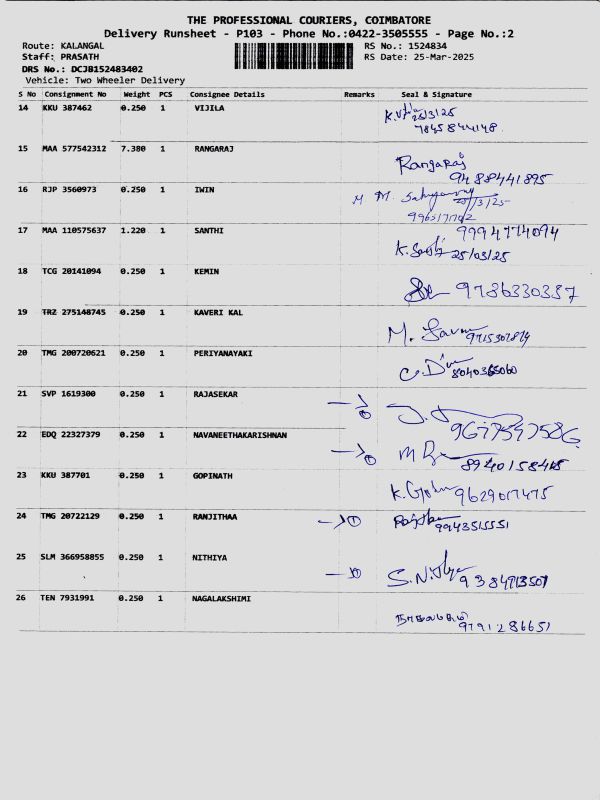 THE PROFESSIONAL COURIERS, COIMBATORE
Delivery Runsheet - P103 - Phone No.:0422-3505555 - Page No.:2
Route: KALANGAL RS No.: 1524834
Staff: PRASATH RS Date: 25-Mar-2025
DRS No.: DCJB152483402
Vehicle: Two Wheeler Delivery
S No Consignment No Weight PCS Consignee Details Remarks Seal & Signature
14 KKU 387462 0.250 1 VIJILA 25/3/25
7845844148
15 MAA 577542312 7.380 1 RANGARAJ Rangaraj
9488441895
16 RJP 3560973 0.250 1 IWIN M M.
17 MAA 110575637 1.220 1 SANTHI 9994774094
K. 25/03/25
18 TCG 20141094 0.250 1 KEMIN 9786330337
19 TRZ 275148745 0.250 1 KAVERI KAL M.
20 TMG 200720621 0.250 1 PERIYANAYAKI
21 SVP 1619300 0.250 1 RAJASEKAR
22 EDQ 22327379 0.250 1 NAVANEETHAKARISHNAN
23 KKU 387701 0.250 1 GOPINATH 9629017475
24 TMG 20722129 0.250 1 RANJITHAA 9943515551
25 SLM 366958855 0.250 1 NITHIYA S.N.
26 TEN 7931991 0.250 1 NAGALAKSHIMI
9791286651